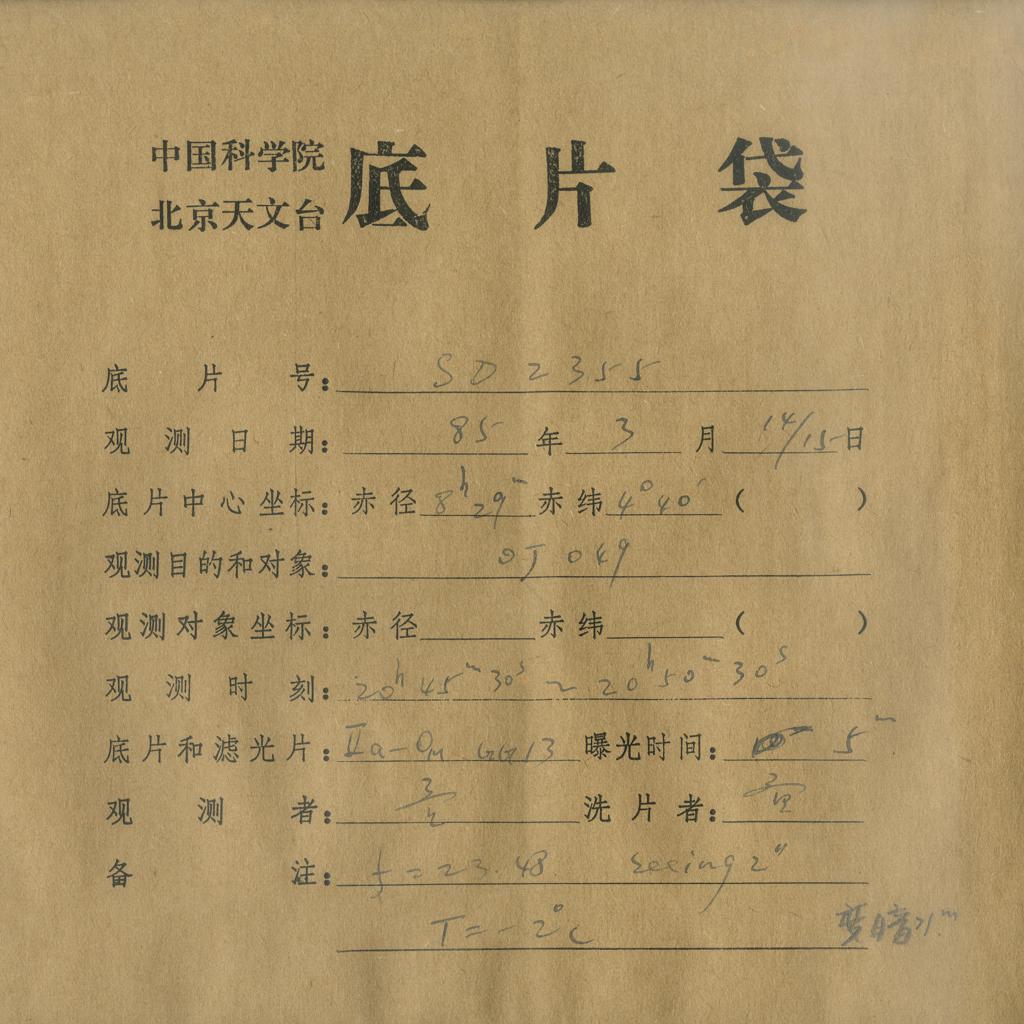 中国科学院
北京天文台 底片袋
底片号: SD 2355
观测日期: 85 年 3 月 14/15 日
底片中心坐标: 赤径 8ʰ 29ᵐ 赤纬 4° 40′ ( )
观测目的和对象: OJ 049
观测对象坐标: 赤径 赤纬 ( )
观测时刻: 20ʰ 45ᵐ 30ˢ ~ 20ʰ 50ᵐ 30ˢ
底片和滤光片: IIa-O GG13 曝光时间: 5ᵐ
观测者: 洗片者:
备注: f = 23.48 seeing 2″
T = -2°C
变暗>1ᵐ